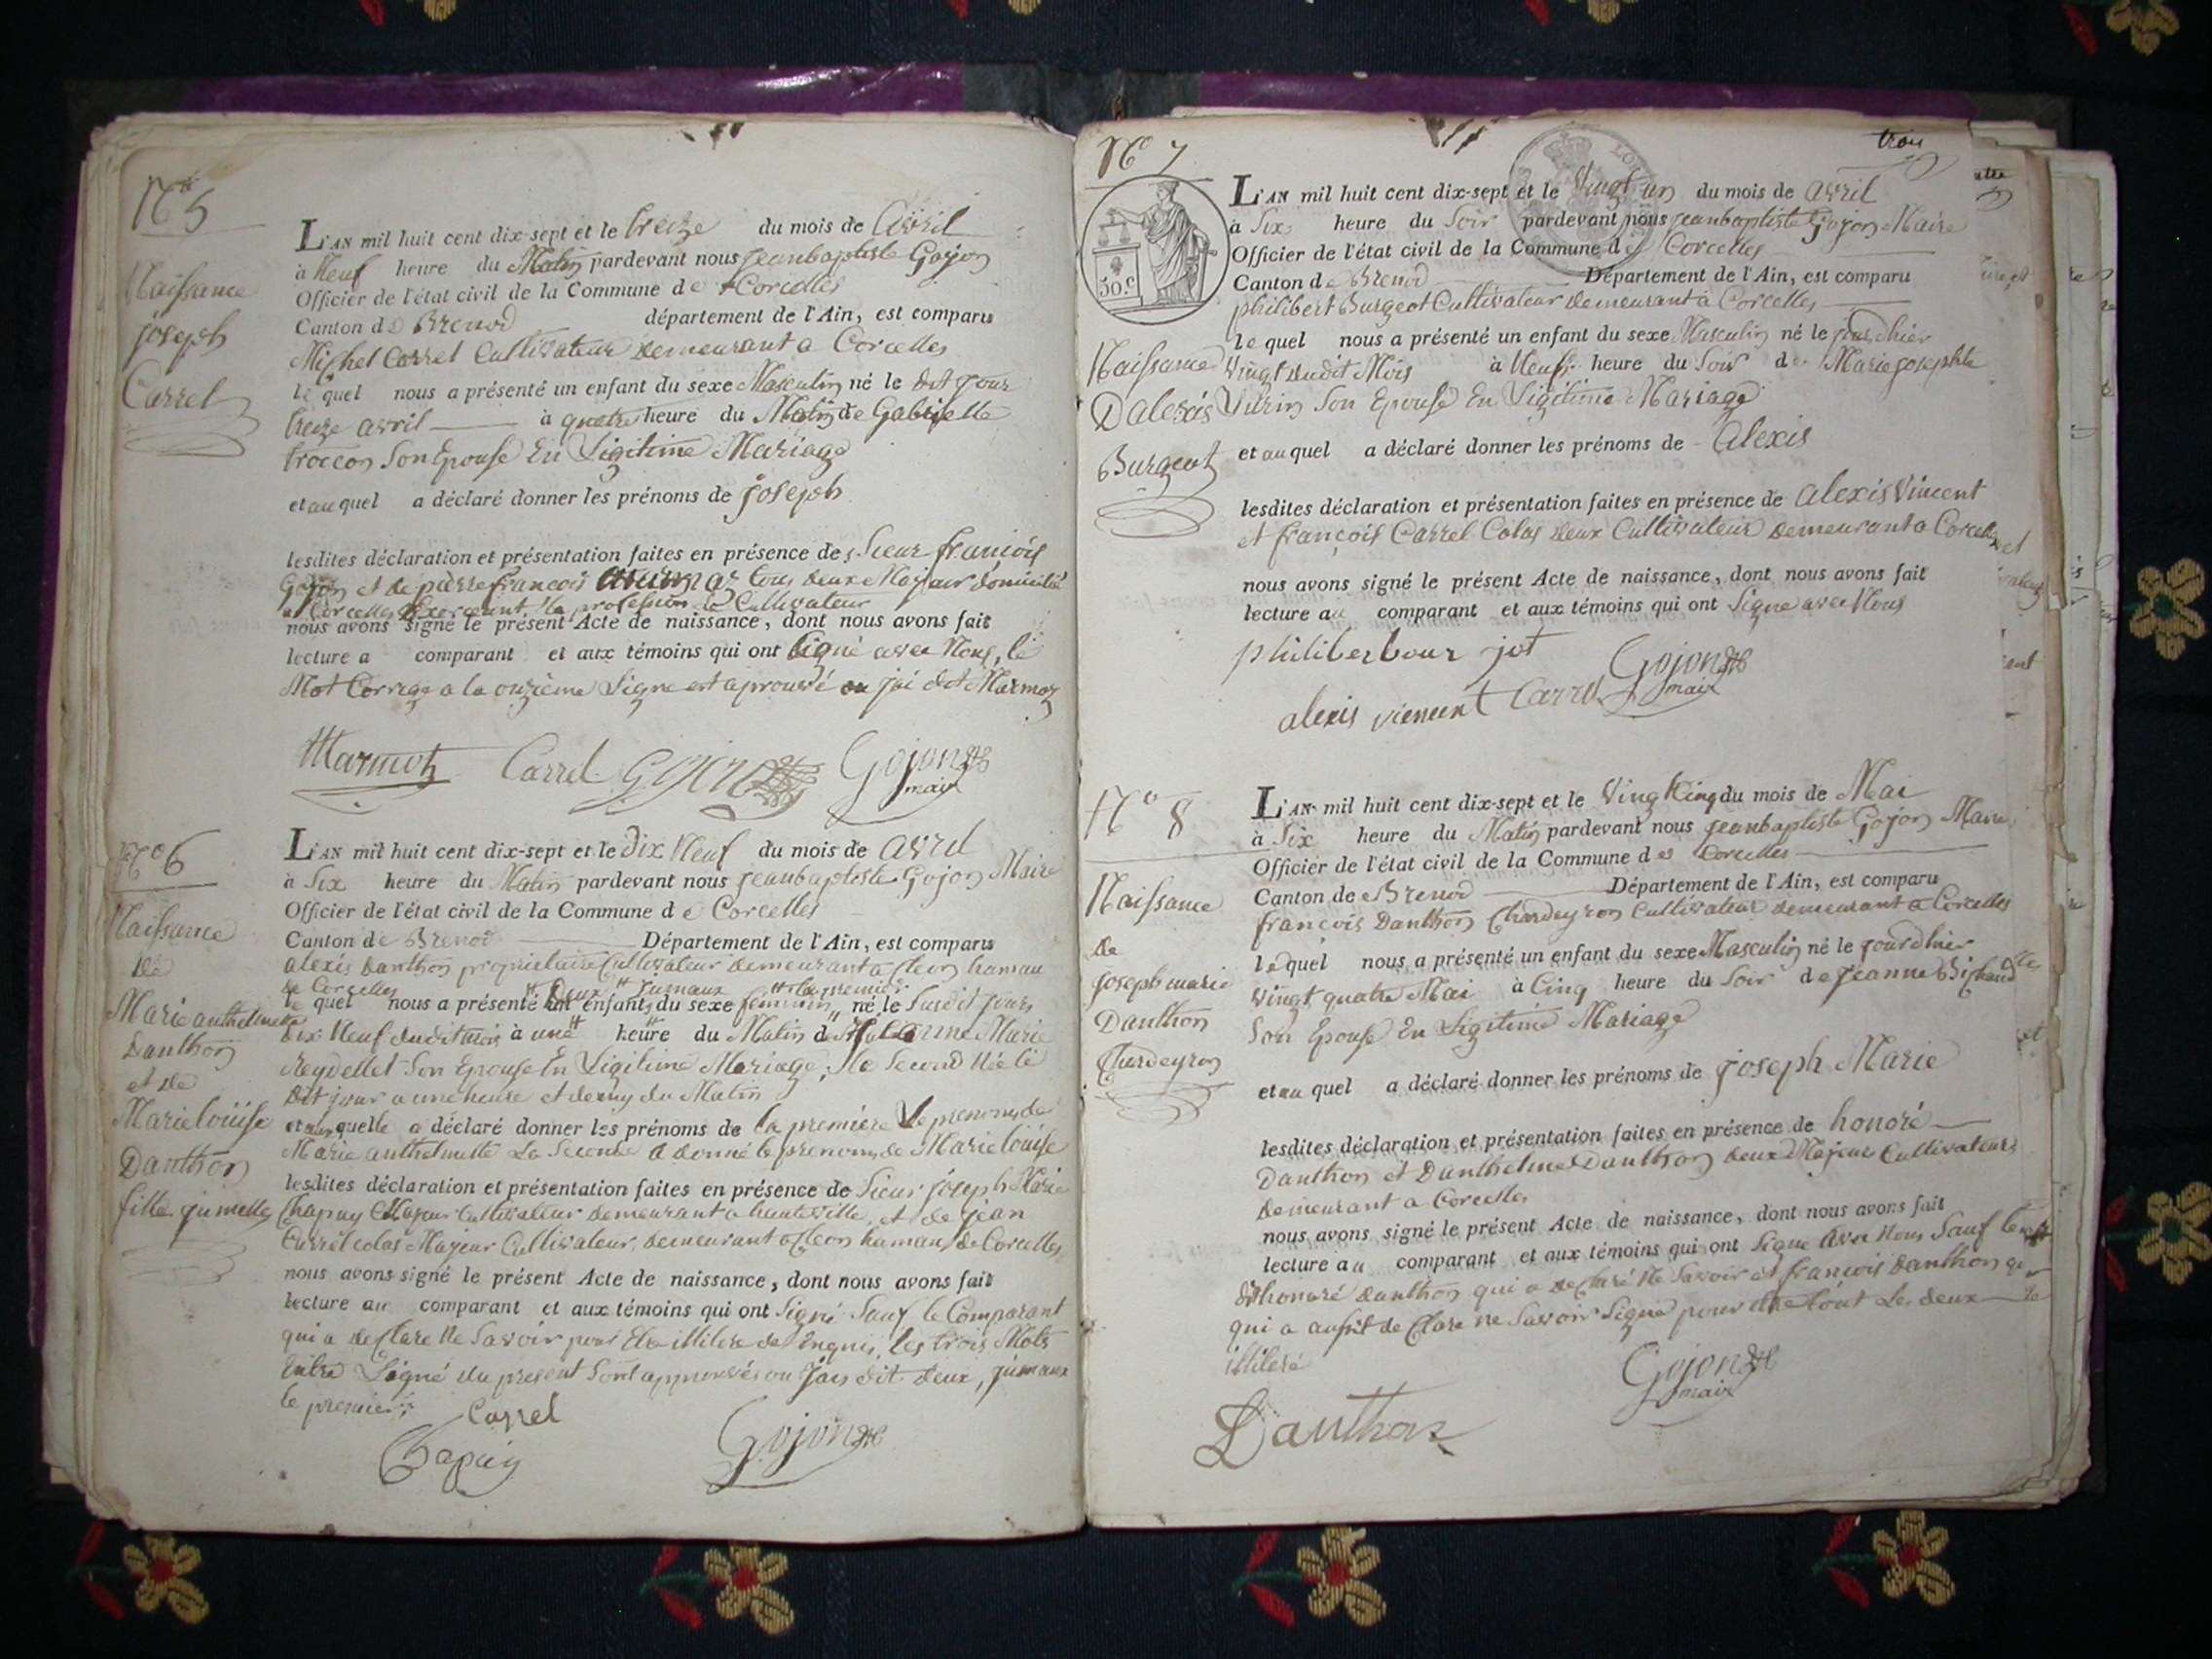 N° 5
Naissance
joseph
Carrel
L'AN mil huit cent dix-sept et le treize du mois de Avril
à Neuf heure du Matin pardevant nous jeanbaptiste Gojon
Officier de l'état civil de la Commune de Corcelles
Canton de Brenod département de l'Ain, est comparu
Michel Carrel Cultivateur demeurant a Corcelles
le quel nous a présenté un enfant du sexe Masculin né le dit jour
treize avril à quatre heure du Matin de Gabrielle
troccon Son Epouse En Ligitime Mariage
et au quel a déclaré donner les prénoms de joseph
lesdites déclaration et présentation faites en présence de Sieur françois
Gojon et de pierre françois tous deux Majeur domicilié
a Corcelles Exercant la profession de Cultivateur
nous avons signé le présent Acte de naissance, dont nous avons fait
lecture a comparant et aux témoins qui ont Signé avec Nous, le
Mot Corrigé a la onzieme Ligne est aprouvé ou jai dit Marmoz
Marmoz Carrel Gojon Gojon
maire
N° 6
Naissance
de
Marie anthelmette
Danthon
et de
Marie loüise
Danthon
fille jumelle
L'AN mil huit cent dix-sept et le Dix Neuf du mois de avril
à Six heure du Matin pardevant nous jeanbaptiste Gojon Maire
Officier de l'état civil de la Commune de Corcelles
Canton de Brenod Département de l'Ain, est comparu
alexis Danthon proprietaire Cultivateur demeurant a Cleon hamau
de Corcelles Deux jumaux le premier
le quel nous a présenté un enfants du sexe feminin né le Susdit jour
Dix Neuf dudit mois à une heure du Matin de Marie
Reydellet Son Epouse En Ligitime Mariage, le Second Née le
dit jour a une heure et demy du Matin
et aux quelle a déclaré donner les prénoms de la premiere le prenom de
Marie anthelmette La Seconde a donné le prenom de Marie loüise
lesdites déclaration et présentation faites en présence de Sieur joseph Marie
Chapuy Majeur Cultivateur demeurant a hauteville et de jean
Carrel colas Majeur Cultivateur demeurant a Cleon hamau de Corcelles
nous avons signé le présent Acte de naissance, dont nous avons fait
lecture au comparant et aux témoins qui ont Signé Sauf le Comparant
qui a declare Ne Savoir pour Etre illitere de Enquis, les trois Mots
Entre Ligné du present Sont approuvés ou jais dit deux, jumaux
le premier
Carrel
Chapuy Gojon
trois
N° 7
30.c
Naissance
D'alexis
Burgeot
L'AN mil huit cent dix-sept et le Vingt un du mois de avril
à Six heure du Soir pardevant nous jeanbaptiste Gojon Maire
Officier de l'état civil de la Commune de Corcelles
Canton de Brenod Département de l'Ain, est comparu
philibert Burgeot Cultivateur demeurant à Corcelles
le quel nous a présenté un enfant du sexe Masculin né le jour d'hier
Vingt dudit Mois à Neuf heure du Soir de Marie josephte
Vitrin Son Epouse En Ligitime Mariage
et au quel a déclaré donner les prénoms de Alexis
lesdites déclaration et présentation faites en présence de alexis Vincent
et françois Carrel Colas deux Cultivateur demeurant a Corcelles
nous avons signé le présent Acte de naissance, dont nous avons fait
lecture au comparant et aux témoins qui ont Signe avec Nous
philiber bour jot Gojon
maire
alexis viencent Carrel
N° 8
Naissance
de
joseph marie
Danthon
Chardeyron
L'AN mil huit cent dix-sept et le Vingt Cinq du mois de Mai
à Six heure du Matin pardevant nous jeanbaptiste Gojon Maire
Officier de l'état civil de la Commune de Corcelles
Canton de Brenod Département de l'Ain, est comparu
françois Danthon Chardeyron Cultivateur demeurant a Corcelles
le quel nous a présenté un enfant du sexe Masculin né le jour d'hier
vingt quatre Mai à Cinq heure du Soir de jeanne
Son Epouse En Ligitime Mariage
et au quel a déclaré donner les prénoms de joseph Marie
lesdites déclaration et présentation faites en présence de honoré
Danthon et Danthelme Danthon deux Majeur Cultivateurs
demeurant a Corcelles
nous avons signé le présent Acte de naissance, dont nous avons fait
lecture au comparant et aux témoins qui ont Signe avec Nous Sauf le
dit honoré danthon qui a declaré Ne Savoir et françois danthon
qui a aussit de Clare ne Savoir Signe pour Etre tout Les deux
illiteré
Gojon
maire
Danthon